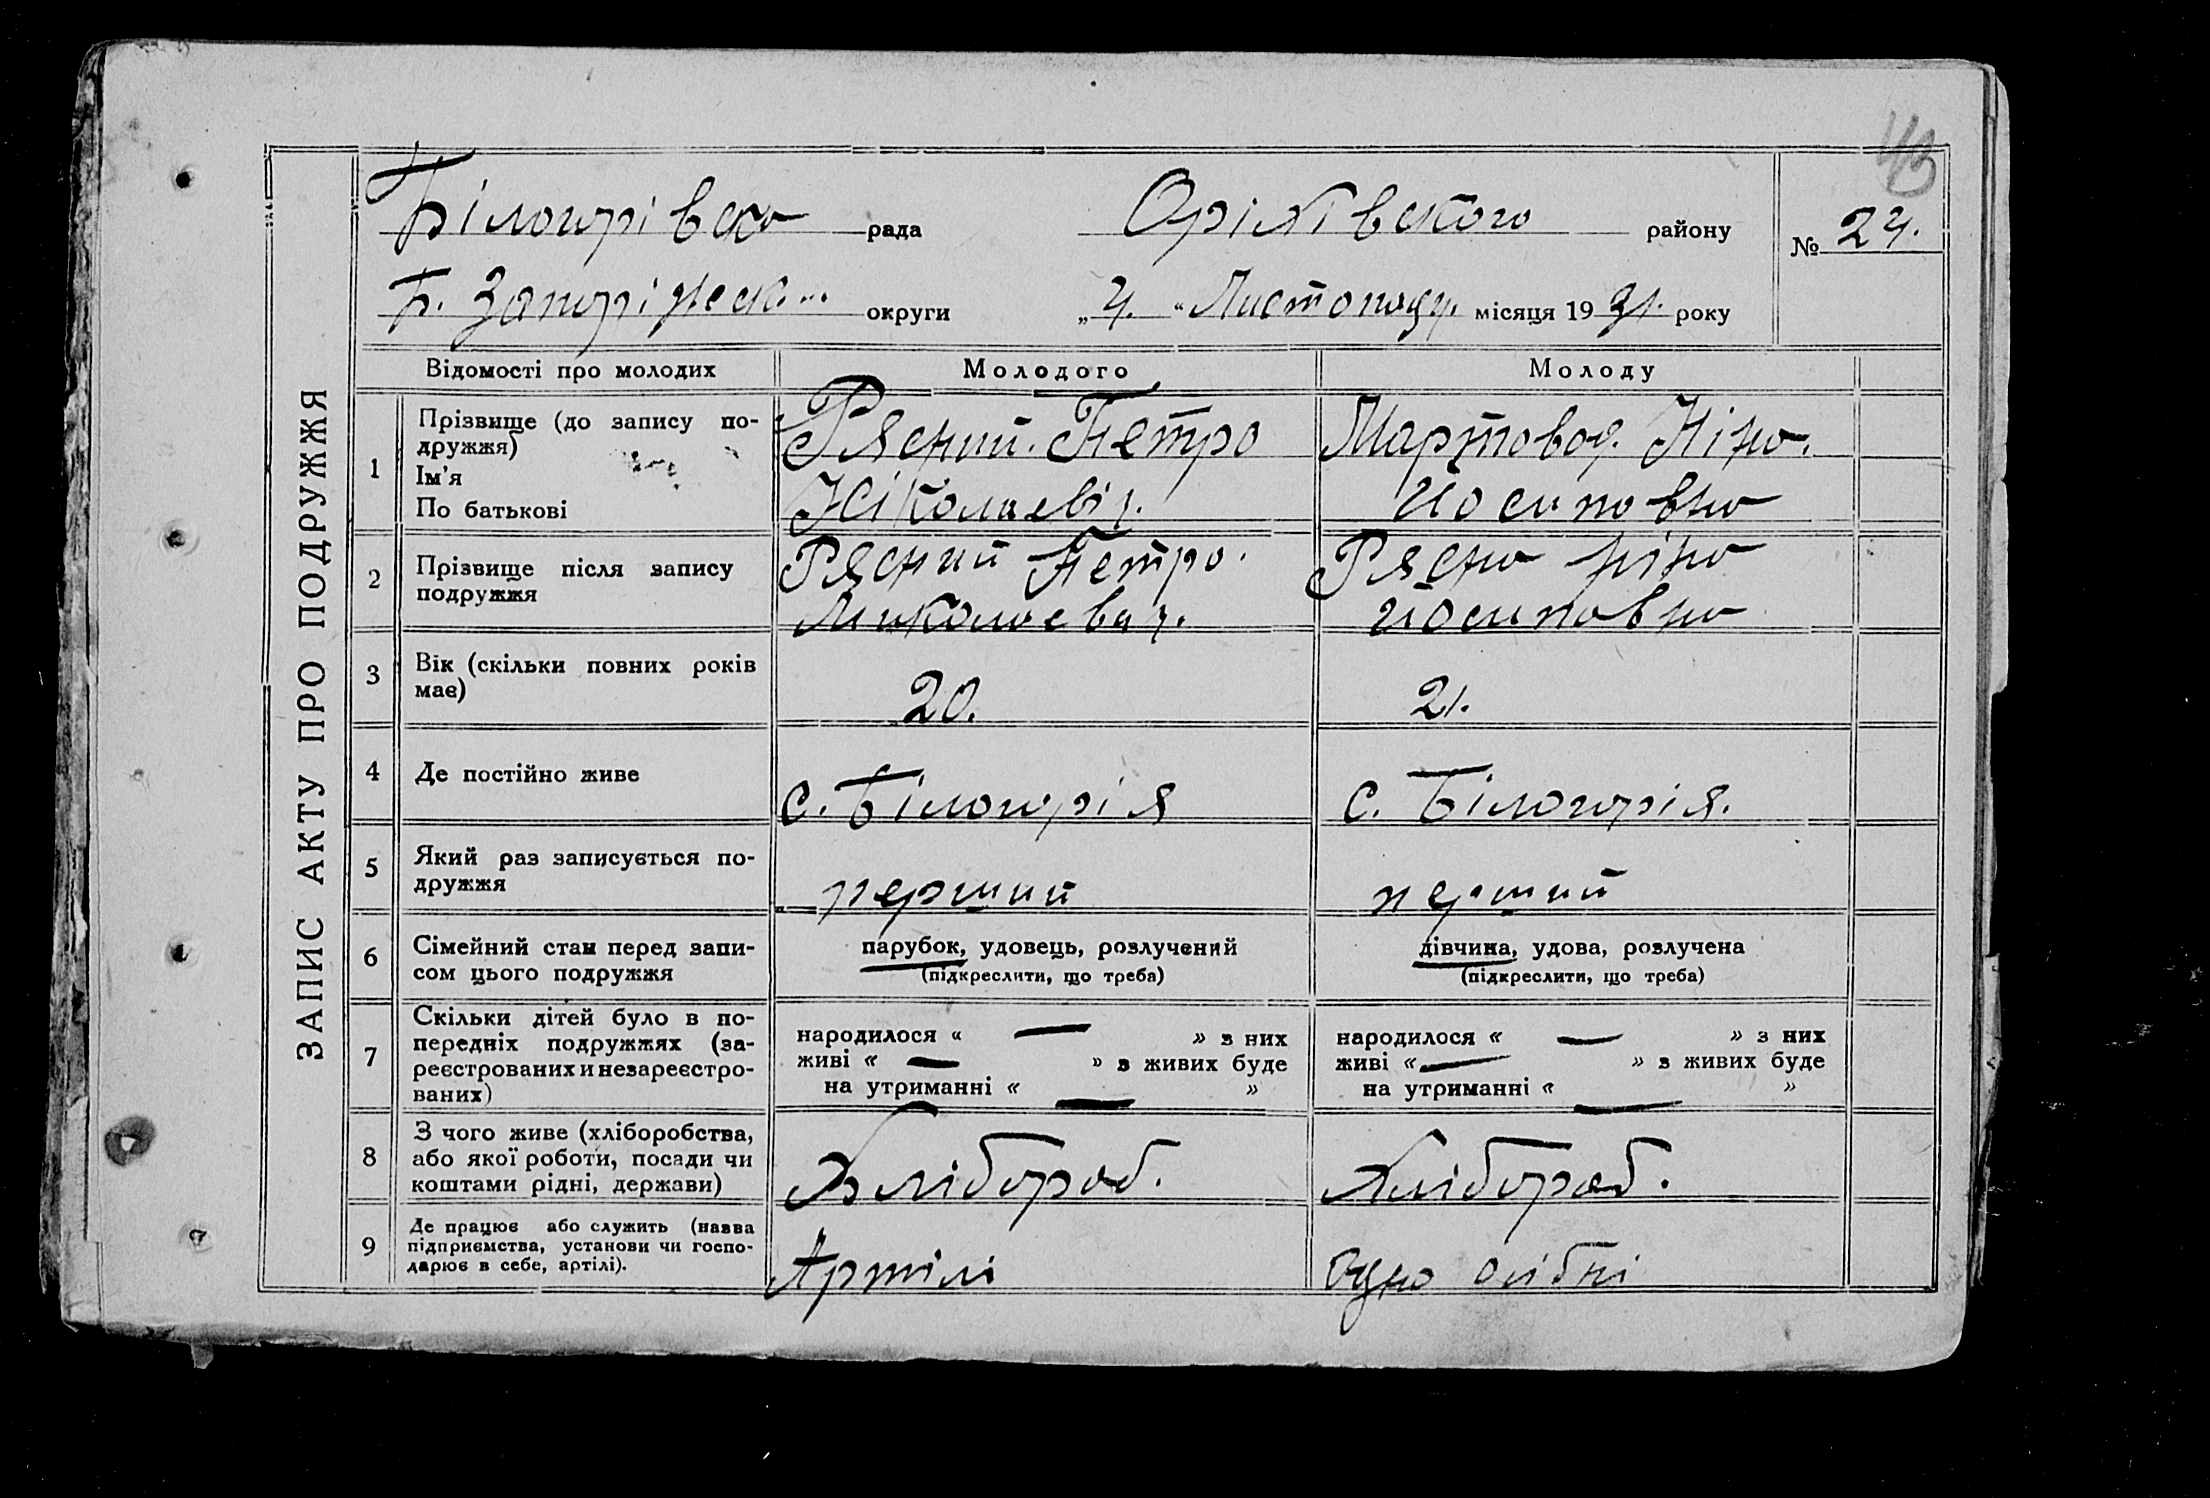 43
ЗАПИС АКТУ ПРО ПОДРУЖЖЯ
Білогірівська рада Оріхівського району № 24.
Б. Запоріжськ... округи „4.“ Листопаду. місяця 1931. року
Відомості про молодих Молодого Молоду
1 Прізвище (до запису по-
дружжя)
Ім'я
По батькові
Рясний. Петро
Ніколаевіч.
Мартовод. Ніна.
Йосиповна
2 Прізвище після запису
подружжя
Рясний Петро.
Миколаевич.
Рясна Ніна
Йосиповна
3 Вік (скільки повних років
має)
20.
21.
4 Де постійно живе
с. Білогірія
с. Білогірія.
5 Який раз записується по-
дружжя
перший
перший
6 Сімейний стан перед запи-
сом цього подружжя
парубок, удовець, розлучений
(підкреслити, що треба)
дівчина, удова, розлучена
(підкреслити, що треба)
7 Скільки дітей було в по-
передніх подружжях (за-
реєстрованих и незареєстро-
ваних)
народилося « — » з них
живі « — » з живих буде
на утриманні « — »
народилося « — » з них
живі « — » з живих буде
на утриманні « — »
8 З чого живе (хліборобства,
або якої роботи, посади чи
коштами рідні, держави)
Хлібороб.
Хлібороб.
9 Де працює або служить (назва
підприємства, установи чи госпо-
дарює в себе, артілі).
Артілі
Одно осібні